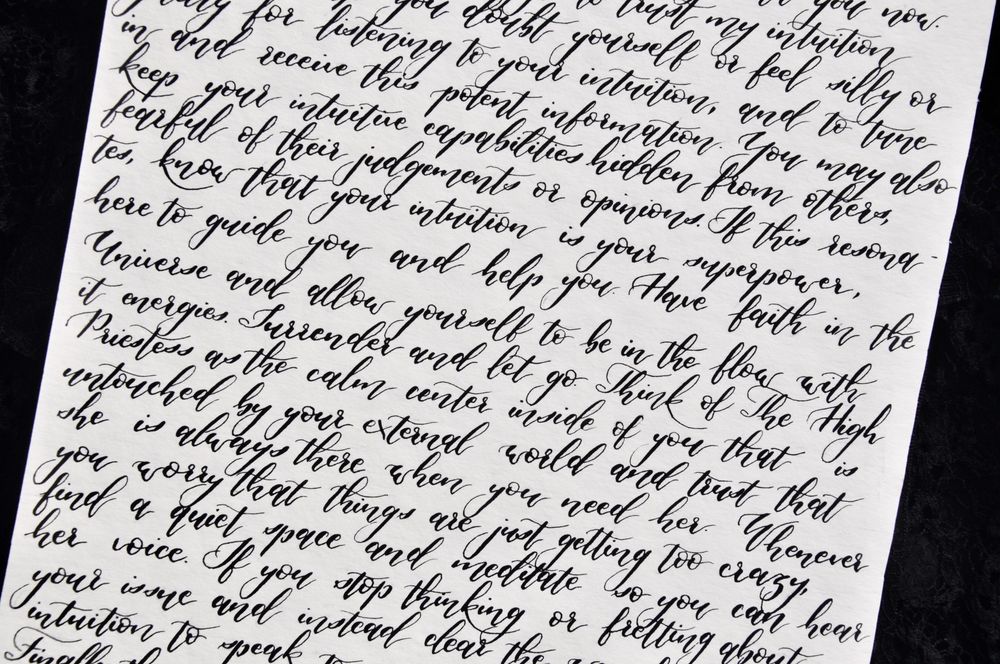 you now.
you doubt to trust my intuition
for listening yourself or feel silly or
in and receive to your intuition, and to tune
keep your this potent information. You may also
fearful intuitive capabilities hidden from others,
of their judgements or opinions. If this resona-
tes, know that your intuition is your superpower,
here to guide you and help you. Have faith in the
Universe and allow yourself to be in the flow with
it energies. Surrender and let go. Think of The High
Priestess as the calm center inside of you that is
untouched by your external world and trust that
she is always there when you need her. Whenever
you worry that things are just getting too crazy,
find a quiet space and meditate so you can hear
her voice. If you stop thinking or fretting about
your issue and instead clear the
intuition to speak to
Finally